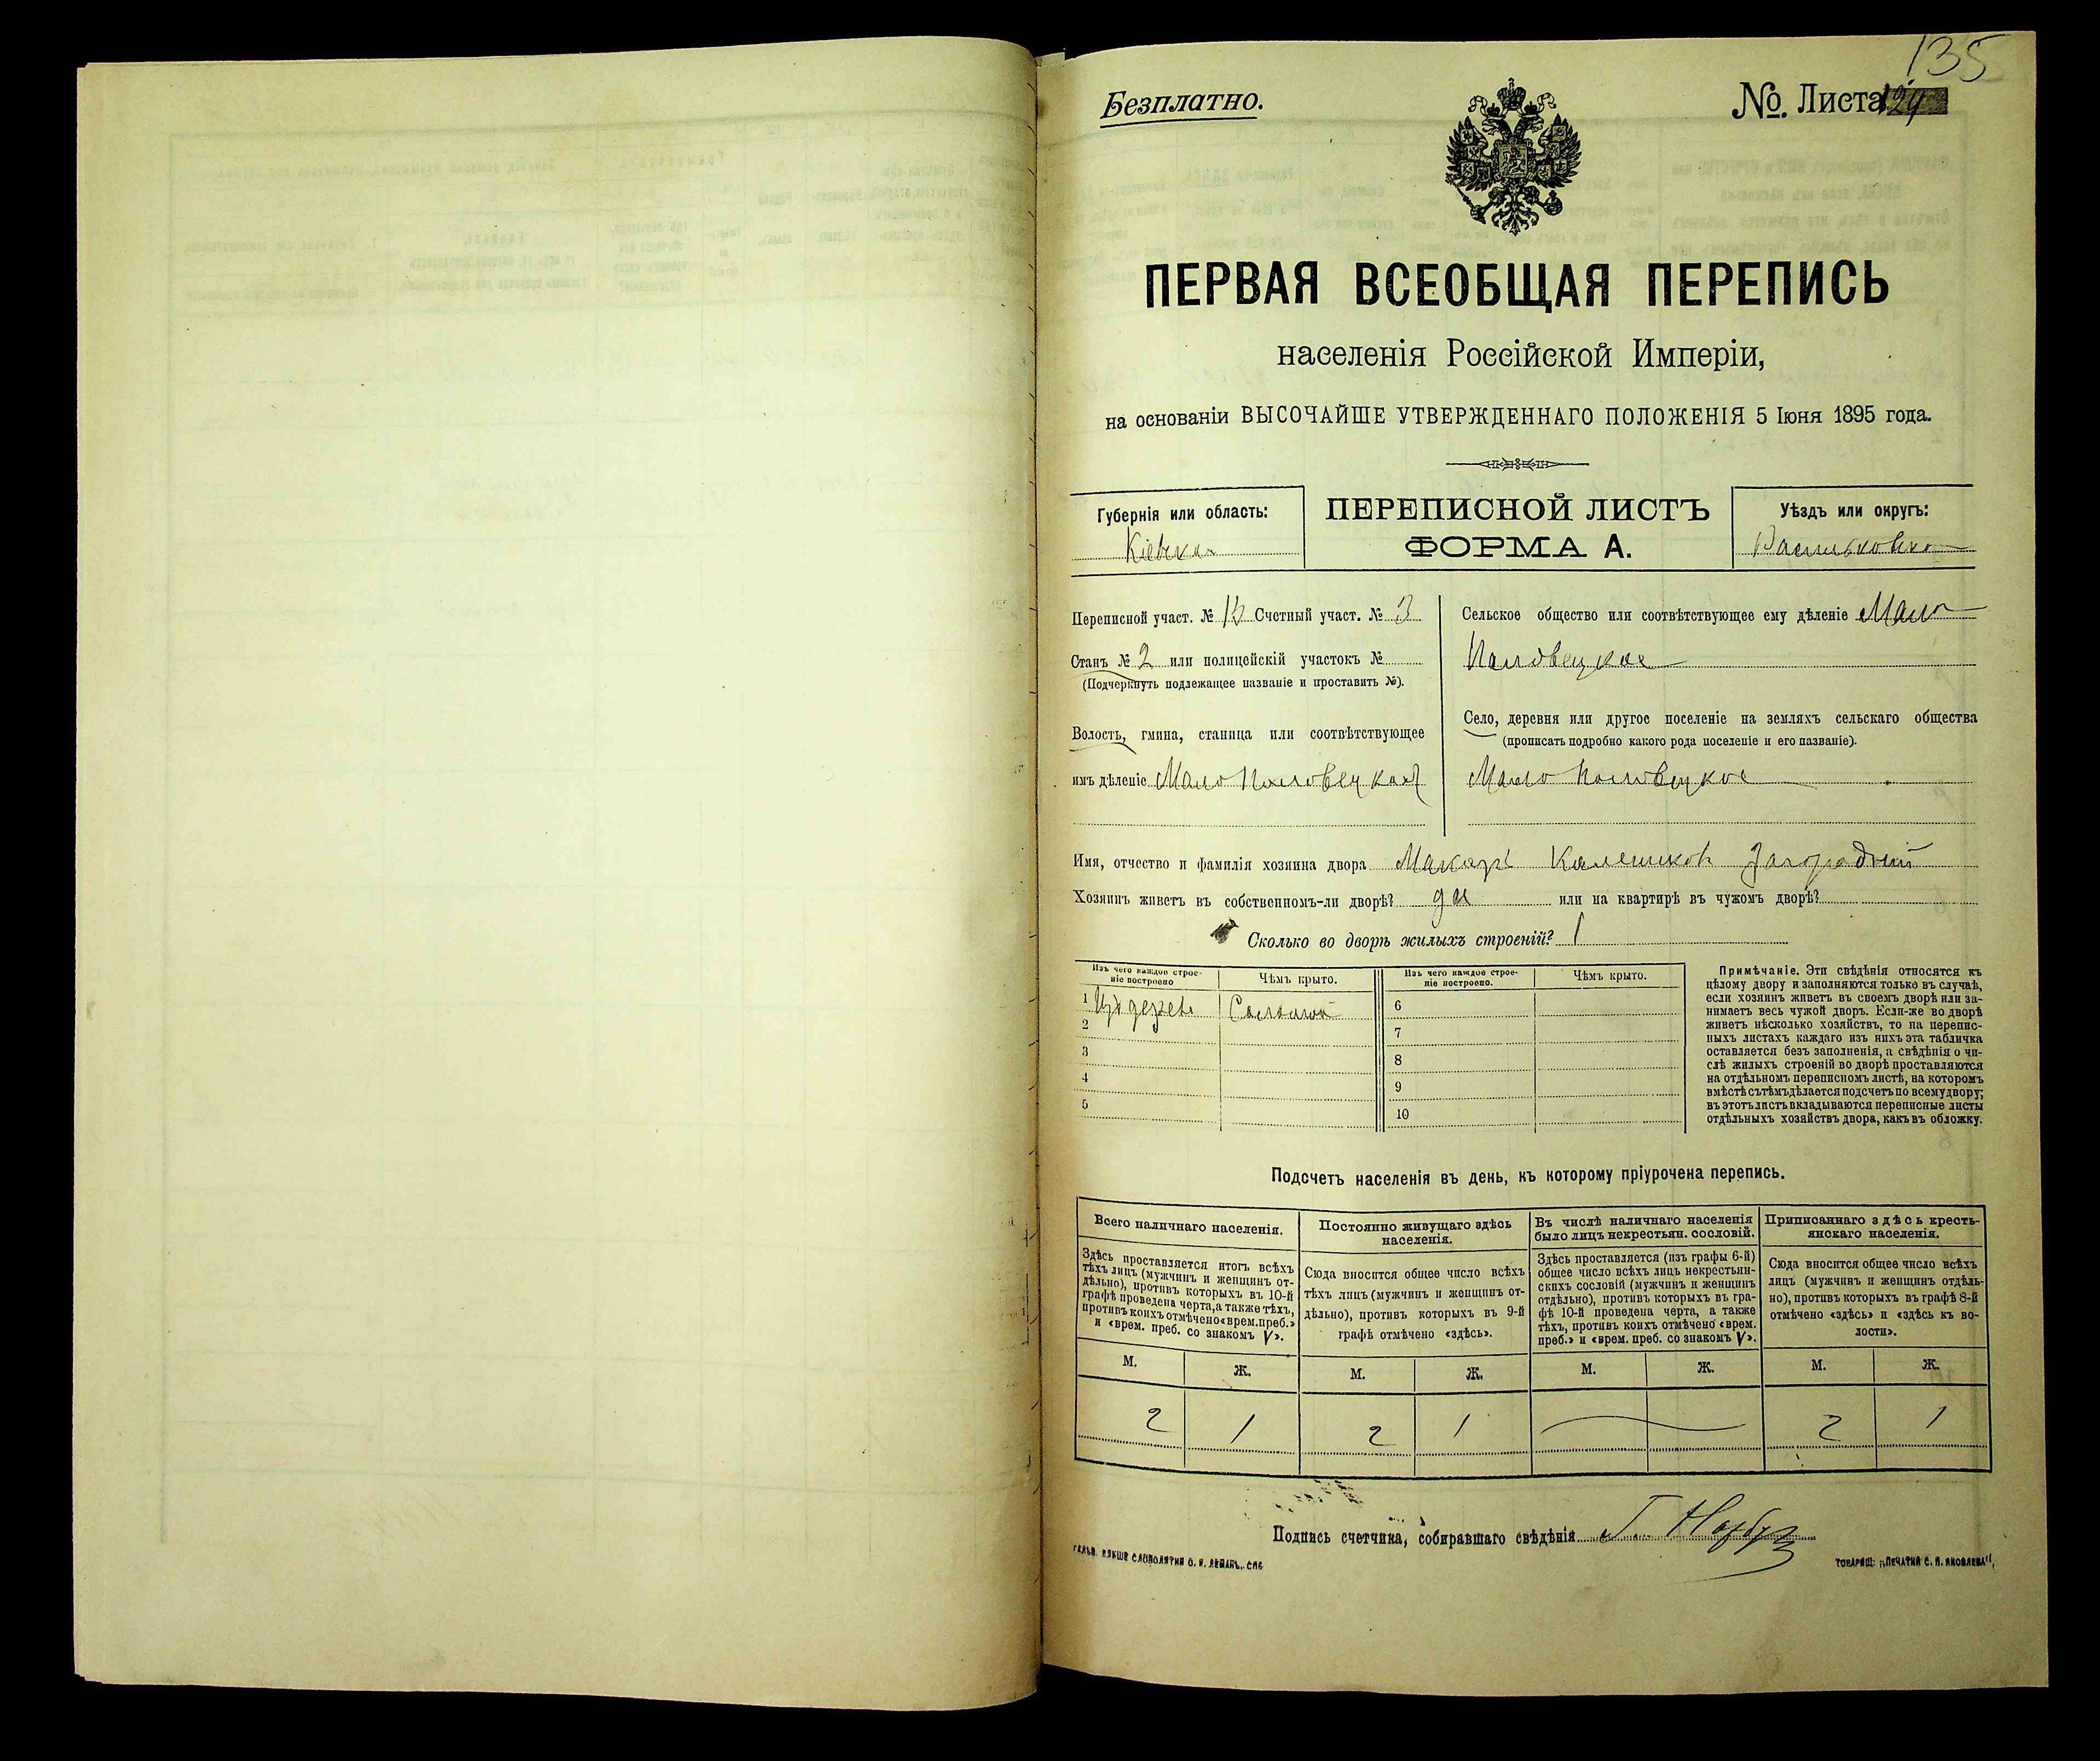 135
Безплатно.
№. Листа 129
ПЕРВАЯ ВСЕОБЩАЯ ПЕРЕПИСЬ
населенія Россійской Имперіи,
на основаніи ВЫСОЧАЙШЕ УТВЕРЖДЕННАГО ПОЛОЖЕНІЯ 5 Іюня 1895 года.
Губернія или область:
Кіевская
ПЕРЕПИСНОЙ ЛИСТЪ
ФОРМА А.
Уѣздъ или округъ:
Васильковскій
Переписной участ. № 13 Счетный участ. № 3
Станъ № 2 или полицейскій участокъ №
(Подчеркнуть подлежащее названіе и проставить №).
Волость, гмина, станица или соотвѣтствующее
имъ дѣленіе Мало Половецкая
Сельское общество или соотвѣтствующее ему дѣленіе Мало
Половецкое
Село, деревня или другое поселеніе на земляхъ сельскаго общества
(прописать подробно какого рода поселеніе и его названіе).
Мало Половецкое
Имя, отчество и фамилія хозяина двора Макаръ Загородній
Хозяинъ живетъ въ собственномъ-ли дворѣ? да или на квартирѣ въ чужомъ дворѣ?
Сколько во дворѣ жилыхъ строеній? 1
Изъ чего каждое строе-
ніе построено
Чѣмъ крыто.
Изъ чего каждое строе-
ніе построено.
Чѣмъ крыто.
1 Изъ дерева Соломой
2
3
4
5
6
7
8
9
10
Примѣчаніе. Эти свѣдѣнія относятся къ
цѣлому двору и заполняются только въ случаѣ,
если хозяинъ живетъ въ своемъ дворѣ или за-
нимаетъ весь чужой дворъ. Если-же во дворѣ
живетъ нѣсколько хозяйствъ, то на перепис-
ныхъ листахъ каждаго изъ нихъ эта табличка
оставляется безъ заполненія, а свѣдѣнія о чи-
слѣ жилыхъ строеній во дворѣ проставляются
на отдѣльномъ переписномъ листѣ, на которомъ
вмѣстѣ съ тѣмъ дѣлается подсчетъ по всему двору;
въ этотъ листъ вкладываются переписные листы
отдѣльныхъ хозяйствъ двора, какъ въ обложку.
Подсчетъ населенія въ день, къ которому пріурочена перепись.
Всего наличнаго населенія.
Здѣсь проставляется итогъ всѣхъ
тѣхъ лицъ (мужчинъ и женщинъ от-
дѣльно), противъ которыхъ въ 10-й
графѣ проведена черта, а также тѣхъ,
противъ коихъ отмѣчено «врем. преб.»
и «врем. преб. со знакомъ V».
Постоянно живущаго здѣсь
населенія.
Сюда вносится общее число всѣхъ
тѣхъ лицъ (мужчинъ и женщинъ от-
дѣльно), противъ которыхъ въ 9-й
графѣ отмѣчено «здѣсь».
Въ числѣ наличнаго населенія
было лицъ некрестьян. сословій.
Здѣсь проставляется (изъ графы 6-й)
общее число всѣхъ лицъ некрестьян-
скихъ сословій (мужчинъ и женщинъ
отдѣльно), противъ которыхъ въ гра-
фѣ 10-й проведена черта, а также
тѣхъ, противъ коихъ отмѣчено «врем.
преб.» и «врем. преб. со знакомъ V».
Приписаннаго здѣсь кресть-
янскаго населенія.
Сюда вносится общее число всѣхъ
лицъ (мужчинъ и женщинъ отдѣль-
но), противъ которыхъ въ графѣ 8-й
отмѣчено «здѣсь» и «здѣсь къ во-
лости».
М. Ж. М. Ж. М. Ж. М. Ж.
2 1 2 1 2 1
Подпись счетчика, собиравшаго свѣдѣнія
СЛОВОЛИТНИ О. И. ЛЕМАНЪ, СПБ
ТОВАРИЩ. „ПЕЧАТНЯ С. П. ЯКОВЛЕВА“,